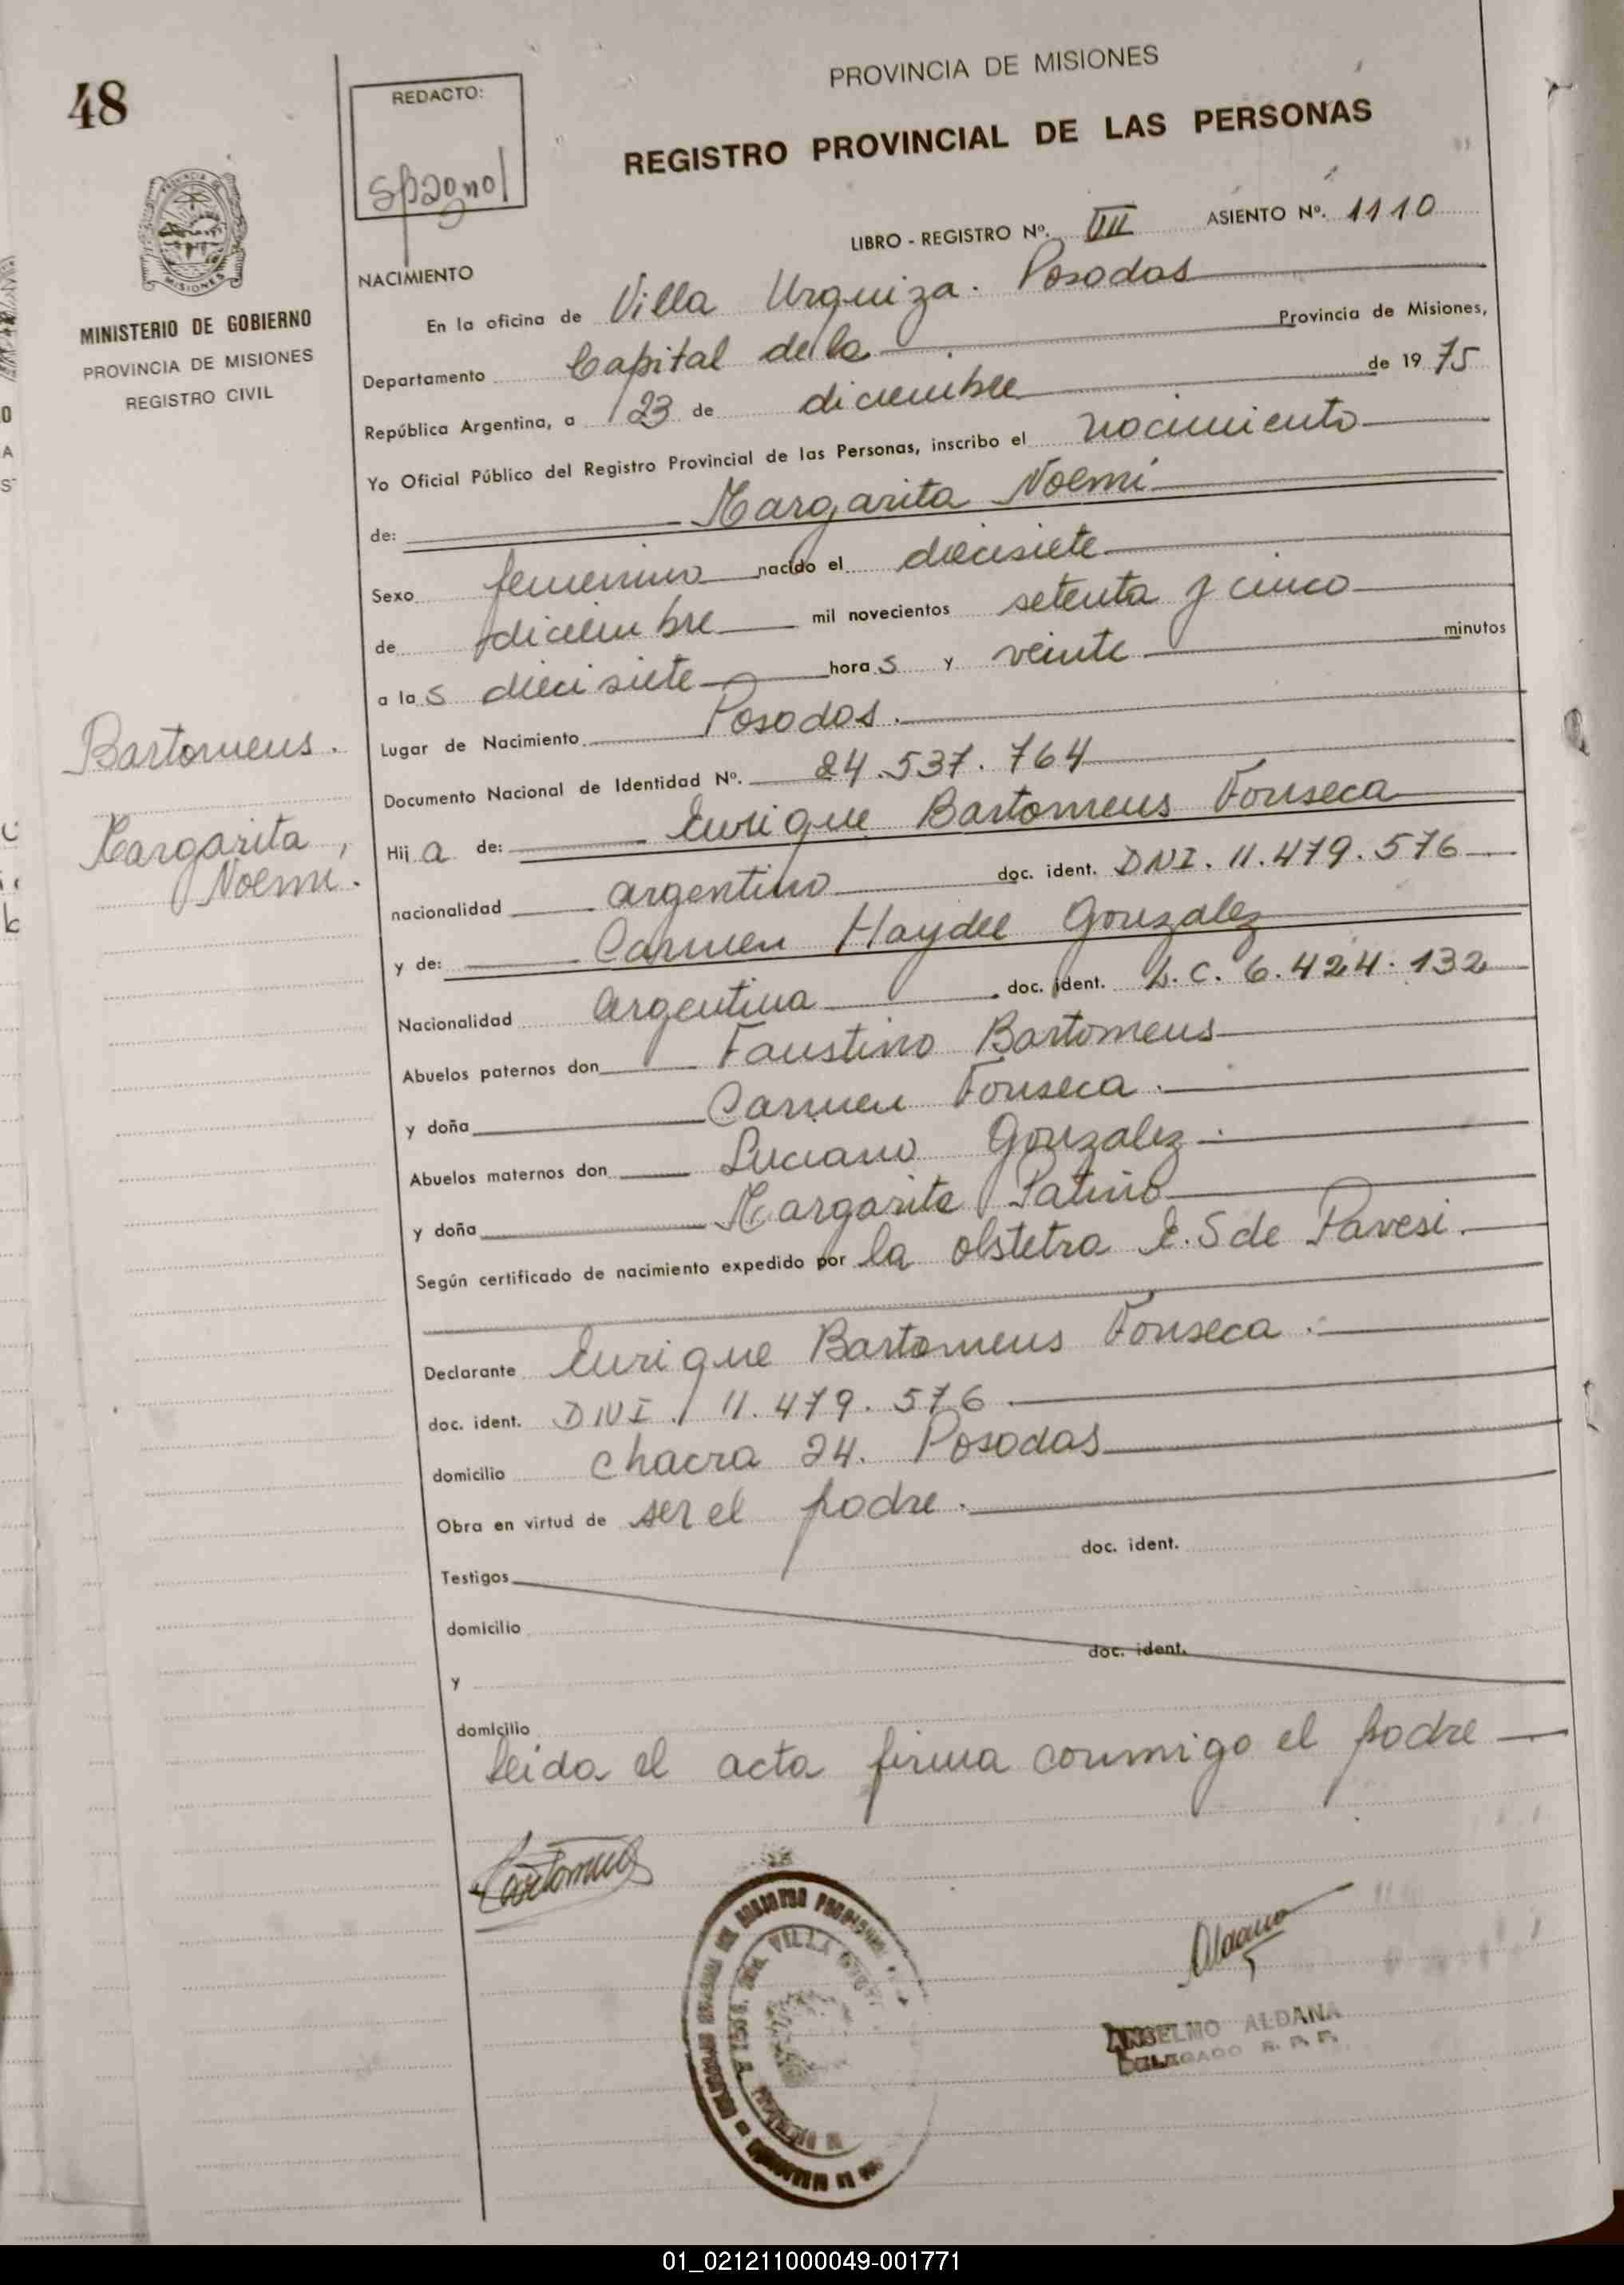 48
REDACTO:
PROVINCIA DE MISIONES
REGISTRO PROVINCIAL DE LAS PERSONAS
LIBRO - REGISTRO Nº. VII ASIENTO Nº. 1110
MISIONES
MINISTERIO DE GOBIERNO
PROVINCIA DE MISIONES
REGISTRO CIVIL
NACIMIENTO
En la oficina de Villa Urquiza. Posadas
Departamento Capital de la Provincia de Misiones,
República Argentina, a 23 de diciembre de 1975
Yo Oficial Público del Registro Provincial de las Personas, inscribo el nacimiento
de: Margarita Noemi
Sexo femenino nacido el diecisiete
de diciembre mil novecientos setenta y cinco
a las diecisiete horas y veinte minutos
Lugar de Nacimiento Posadas.
Documento Nacional de Identidad Nº. 24.537.764
Bartomeus.
Margarita,
Noemi.
Hija de: Enrique Bartomeus Fonseca
nacionalidad argentino doc. ident. DNI. 11.479.576
y de: Carmen Haydee Gonzalez
Nacionalidad argentina doc. ident. L.C. 6.424.132
Abuelos paternos don Faustino Bartomeus
y doña Carmen Fonseca.
Abuelos maternos don Luciano Gonzalez.
y doña Margarita Patiño
Según certificado de nacimiento expedido por la obstetra E. S de Pavesi.
Declarante Enrique Bartomeus Fonseca.
doc. ident. DNI. 11.479.576
domicilio chacra 24. Posadas
Obra en virtud de ser el padre.
Testigos doc. ident.
domicilio
y doc. ident.
domicilio
Leida el acta firma conmigo el padre
Bartomeus
Aldana
VILLA
ANSELMO ALDANA
DELEGADO R. P. P.
01_021211000049-001771